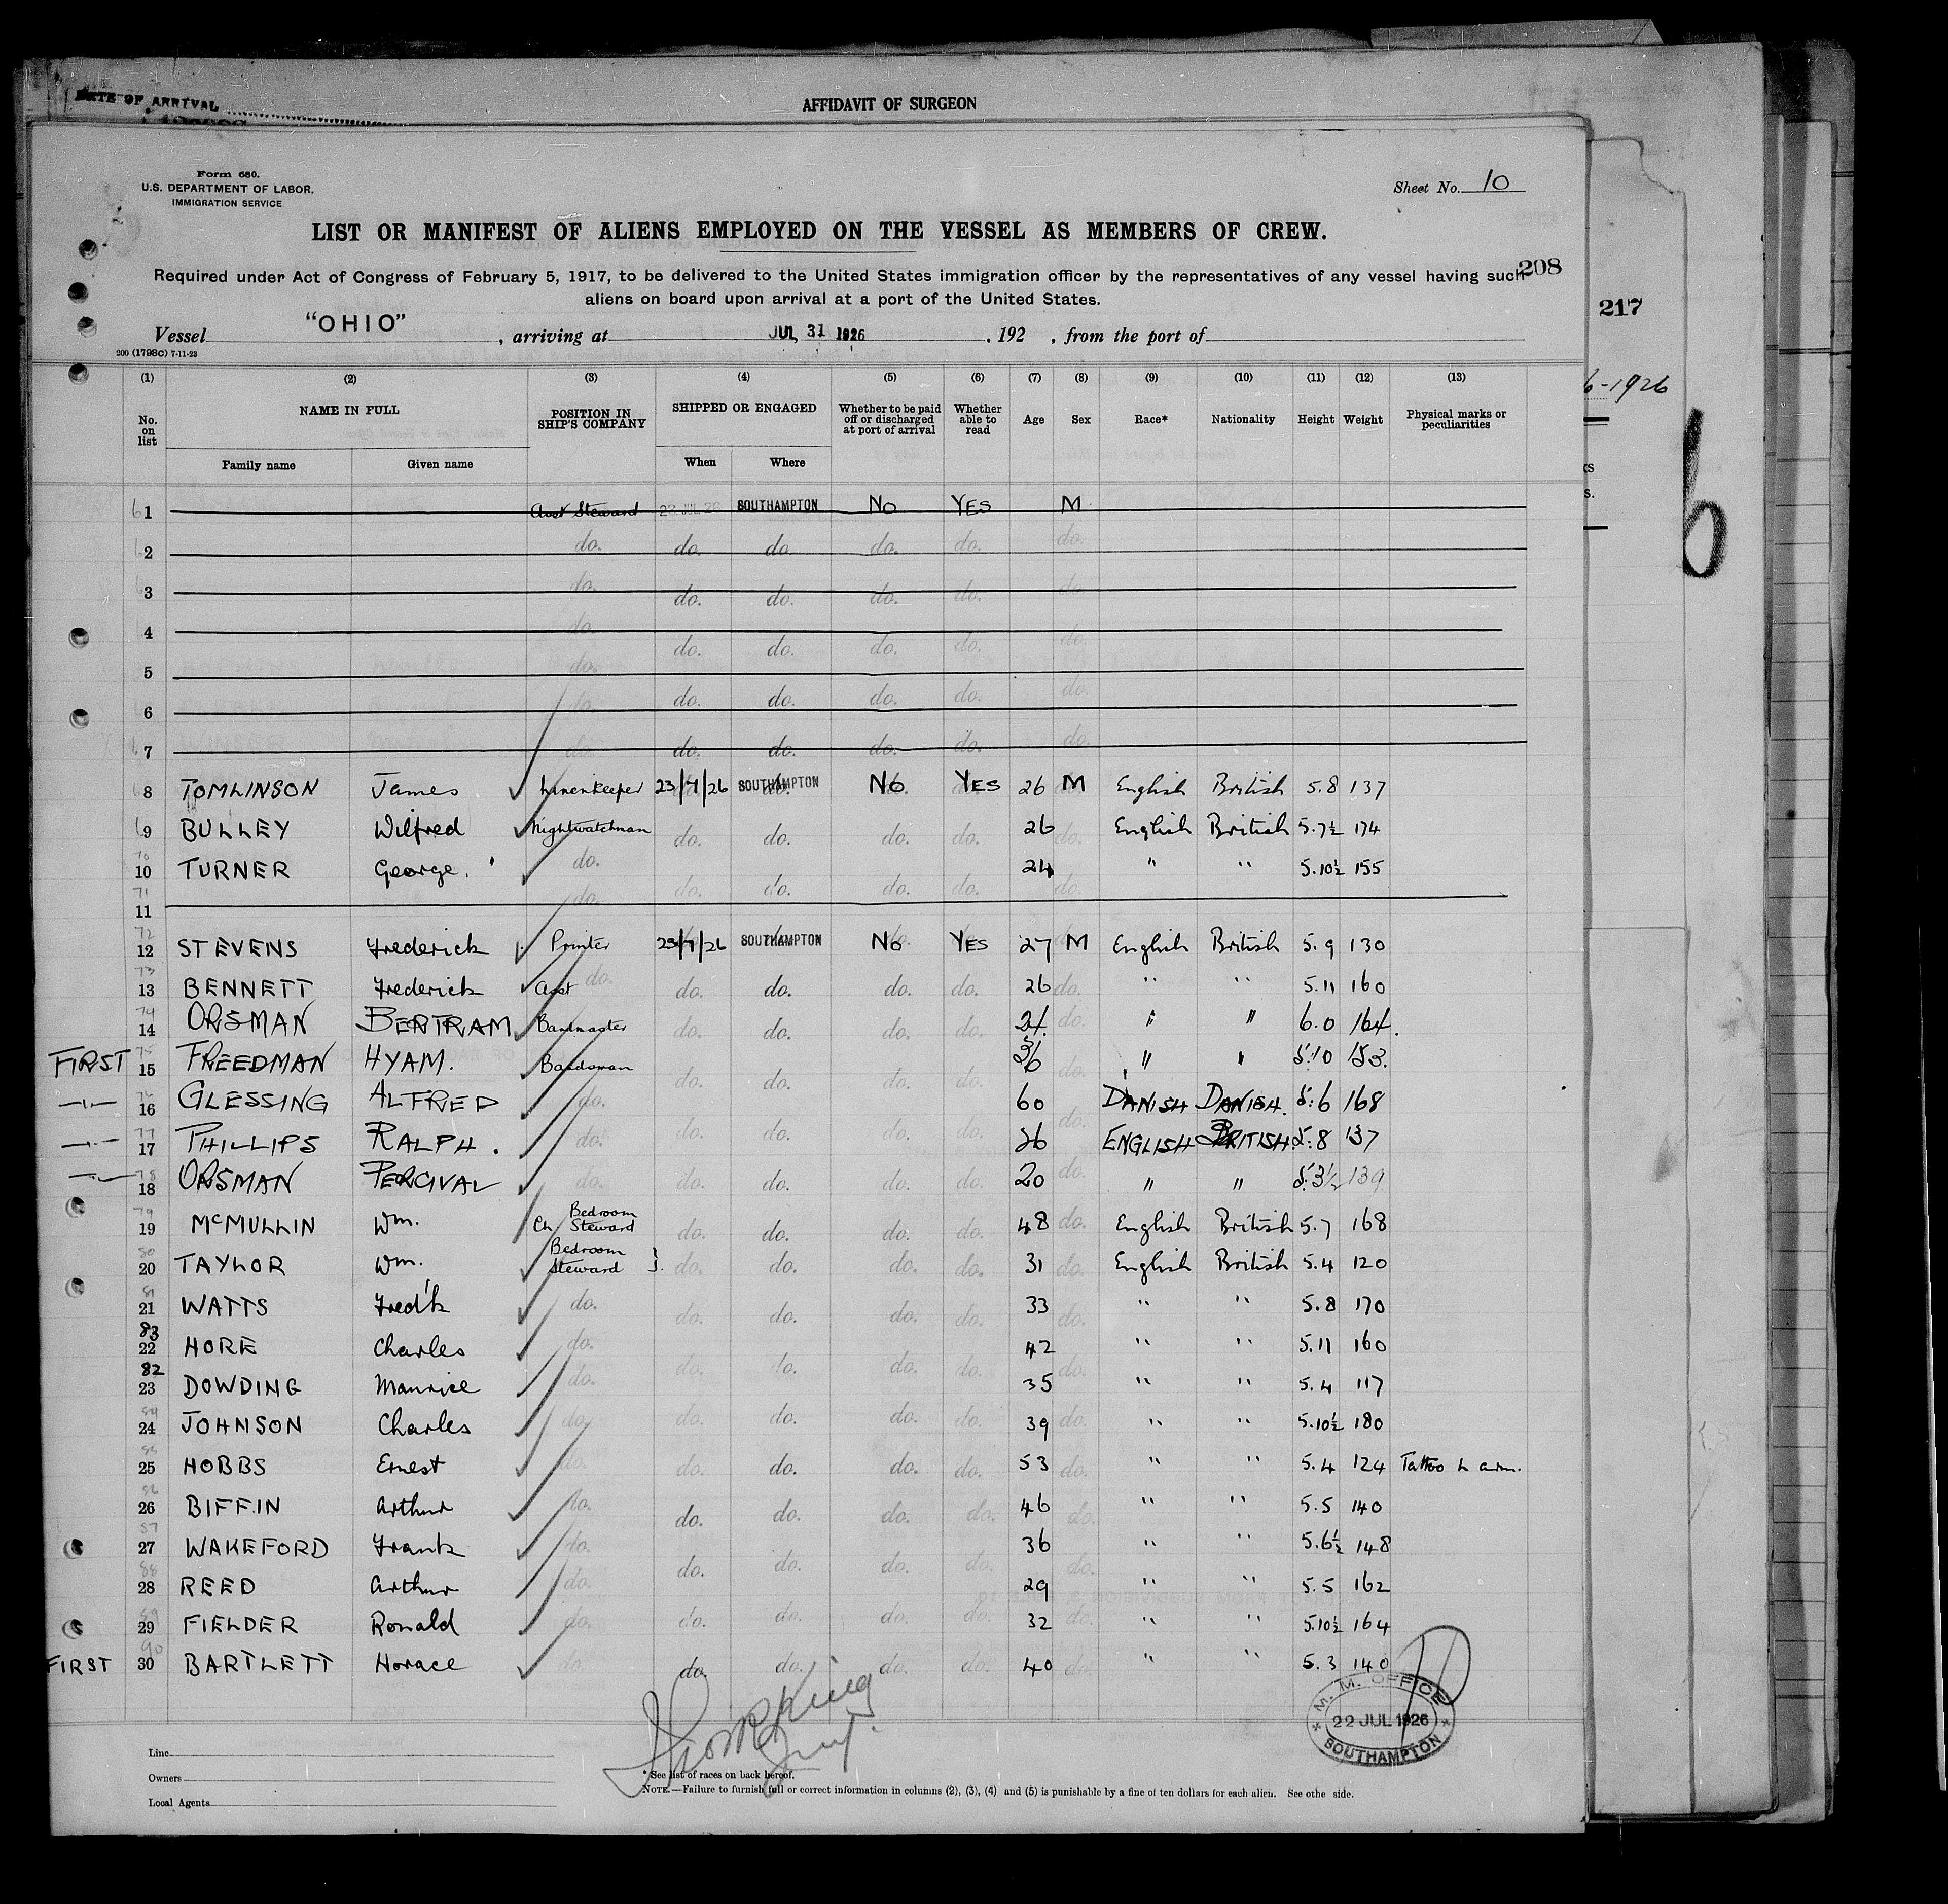 DATE OF ARRIVAL
AFFIDAVIT OF SURGEON
Form 680.
U.S. DEPARTMENT OF LABOR.
IMMIGRATION SERVICE
Sheet No. 10
LIST OR MANIFEST OF ALIENS EMPLOYED ON THE VESSEL AS MEMBERS OF CREW.
208
Required under Act of Congress of February 5, 1917, to be delivered to the United States immigration officer by the representatives of any vessel having such
aliens on board upon arrival at a port of the United States.
217
Vessel "OHIO", arriving at JUL 31 1926, 192 , from the port of
200 (1798C) 7-11-23
6-1926
b
(1) (2) (3) (4) (5) (6) (7) (8) (9) (10) (11) (12) (13)
No. on list NAME IN FULL POSITION IN SHIP'S COMPANY SHIPPED OR ENGAGED Whether to be paid off or discharged at port of arrival Whether able to read Age Sex Race* Nationality Height Weight Physical marks or peculiarities
Family name Given name When Where
1 Asst Steward SOUTHAMPTON No YES M
2 do. do. do. do. do. do.
3 do. do. do. do. do. do.
4 do. do. do. do. do. do.
5 do. do. do. do. do. do.
6 do. do. do. do. do. do.
7 do. do. do. do. do. do.
8 TOMLINSON James Linenkeeper 23/7/26 SOUTHAMPTON No YES 26 M English British 5.8 137
9 BULLEY Wilfred Nightwatchman do. do. do. do. 26 do. English British 5.7½ 174
10 TURNER George. do. do. do. do. do. 24 do. " " 5.10½ 155
11 do.
12 STEVENS Frederick Printer 23/7/26 SOUTHAMPTON No YES 27 M English British 5.9 130
13 BENNETT Frederick Asst do. do. do. do. do. 26 do. " " 5.11 160
14 ORSMAN BERTRAM Bandmaster do. do. do. do. 24. do. " " 6.0 164.
FIRST 15 FREEDMAN HYAM. Bandsman do. do. do. do. 36 do. " " 5:10 153.
16 GLESSING ALFRED do. do. do. do. do. 60 do. DANISH DANISH. 5:6 168
17 PHILLIPS RALPH. do. do. do. do. do. 26 do. ENGLISH BRITISH 5:8 137
18 ORSMAN PERCIVAL do. do. do. do. do. 20 do. " " 5:3½ 139
19 McMULLIN Wm. Ch. Bedroom Steward do. do. do. do. 48 do. English British 5.7 168
20 TAYLOR Wm. Bedroom Steward do. do. do. do. 31 do. English British 5.4 120
21 WATTS Fred'k do. do. do. do. do. 33 do. " " 5.8 170
83
22 HORE Charles do. do. do. do. do. 42 do. " " 5.11 160
82
23 DOWDING Maurice do. do. do. do. do. 35 do. " " 5.4 117
24 JOHNSON Charles do. do. do. do. do. 39 do. " " 5.10½ 180
25 HOBBS Ernest do. do. do. do. do. 53 do. " " 5.4 124 Tattoo L arm.
26 BIFFIN Arthur do. do. do. do. do. 46 do. " " 5.5 140
27 WAKEFORD Frank do. do. do. do. do. 36 do. " " 5.6½ 148
28 REED Arthur do. do. do. do. do. 29 do. " " 5.5 162
29 FIELDER Ronald do. do. do. do. do. 32 do. " " 5.10½ 164
FIRST 30 BARTLETT Horace do. do. do. do. do. 40 do. " " 5.3 140
M. M. OFFICE
22 JUL 1926
SOUTHAMPTON
Line
Owners
Local Agents
* See list of races on back hereof.
NOTE.—Failure to furnish full or correct information in columns (2), (3), (4) and (5) is punishable by a fine of ten dollars for each alien. See othe side.